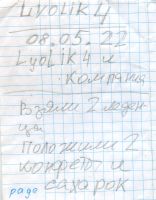 LYOLIK 4
08.05.22
LyoLiK 4 и
Компания
Взяли 2 леден-
ца
Положили 2
конфеты и
сахарок